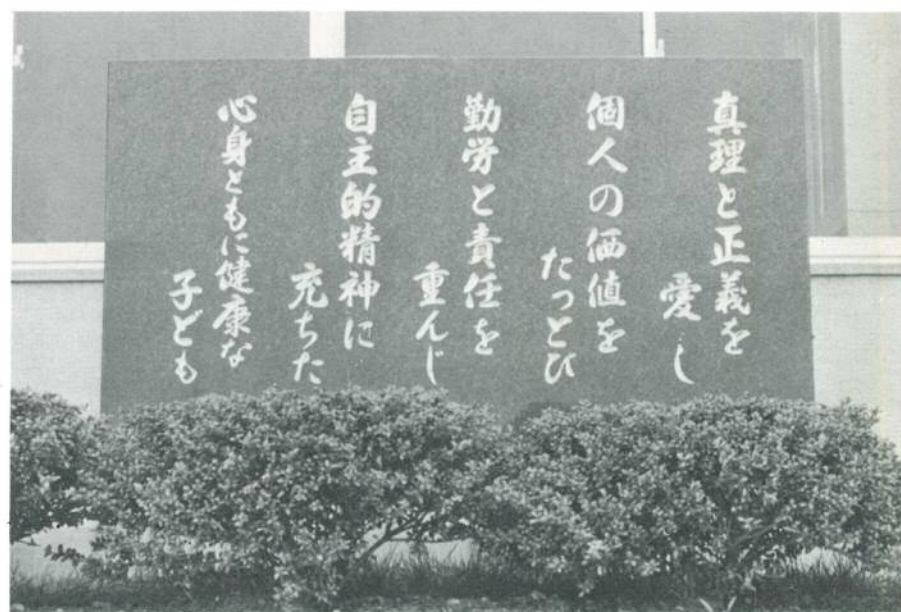 真理と正義を
愛し
個人の価値を
たっとび
勤労と責任を
重んじ
自主的精神に
充ちた
心身ともに健康な
子ども